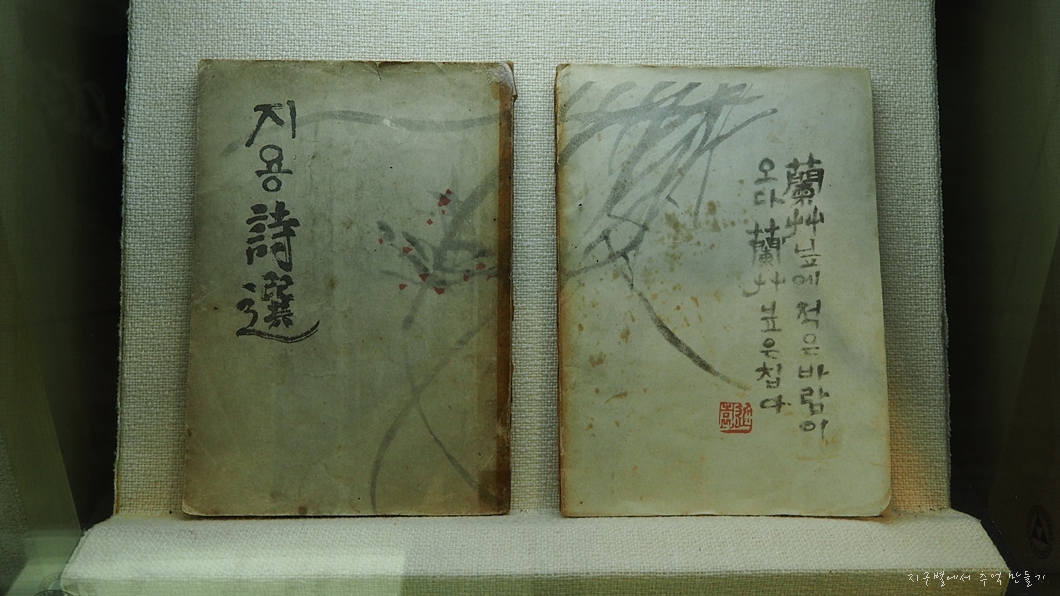 지용詩選
蘭艸닢에 적은 바람이
오다 蘭艸닢은 칩다
지구별에서 추억 만들기